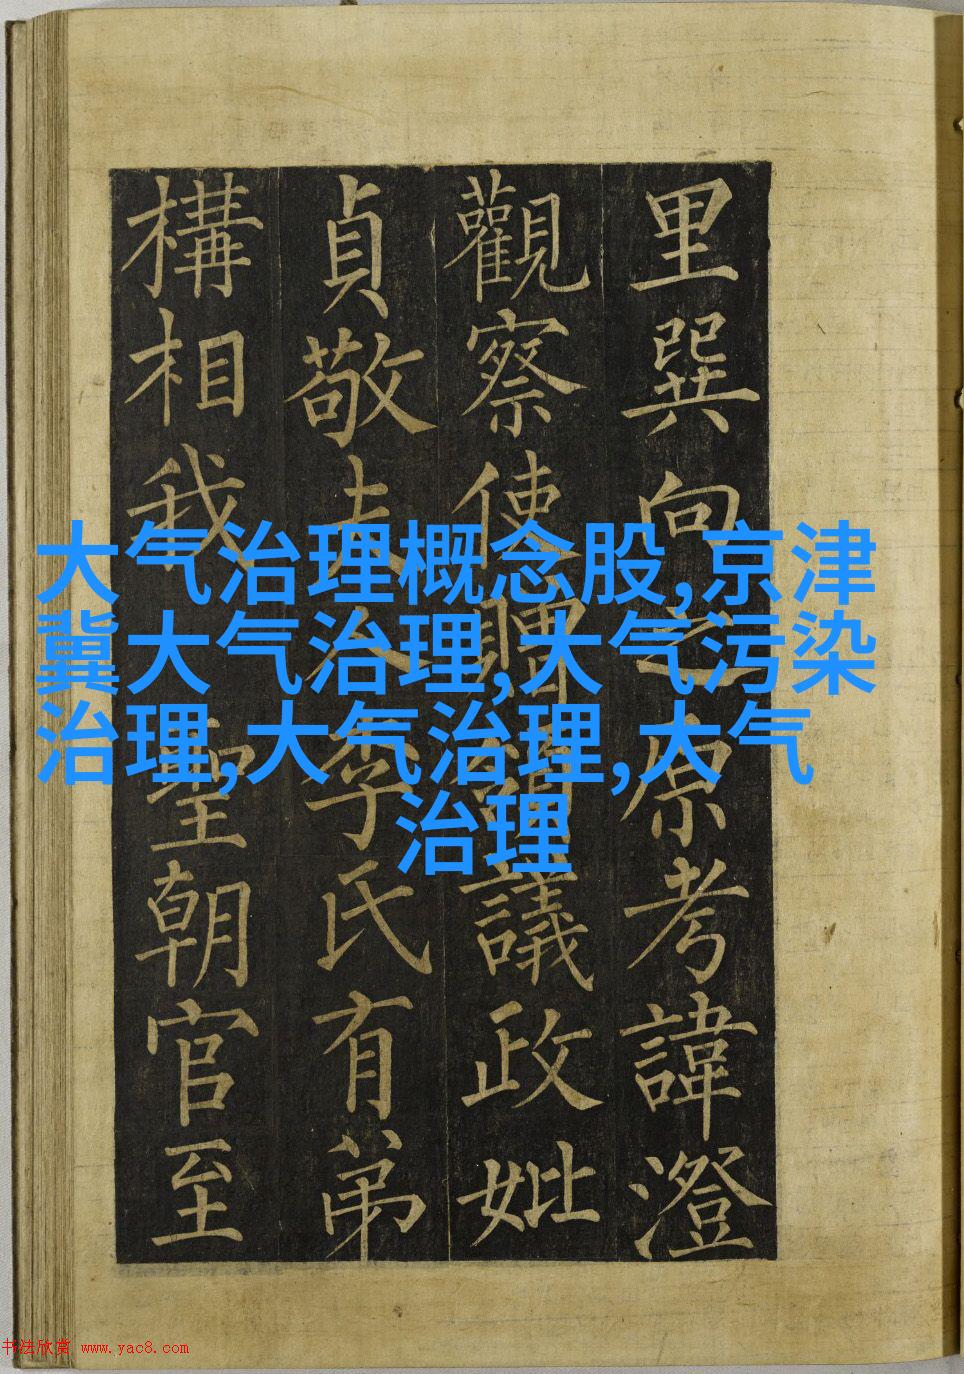 大气治理概念股,京津
冀大气治理,大气污染
治理,大气治理,大气
治理
里巽向之原考諱澄
觀察使贈議政妣
貞敬夫人李氏有弟
構相我聖朝官至
书法欣赏 www.yac8.com